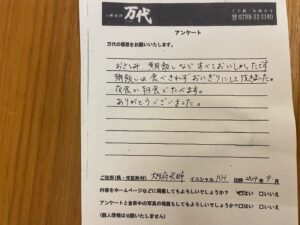 万代
ご予約・お問合せ
☎0799-52-1140
アンケート
万代の感想をお聞かせいたします。
おさしみ 鯛飯しなどすべておいしかったです
鯛飯しは食べきれずおにぎりにして頂きました。
夜食か朝食でたべます。
ありがとうございました。
ご住所(県・市区町村) 大阪府 イニシャル KH 日時 2024年9月
内容をホームページなどに掲載してもよろしいでしょうか? はい □いいえ
アンケートと食事中の写真の掲載もしてもよろしいでしょうか? はい □いいえ
(個人情報は公開いたしません)